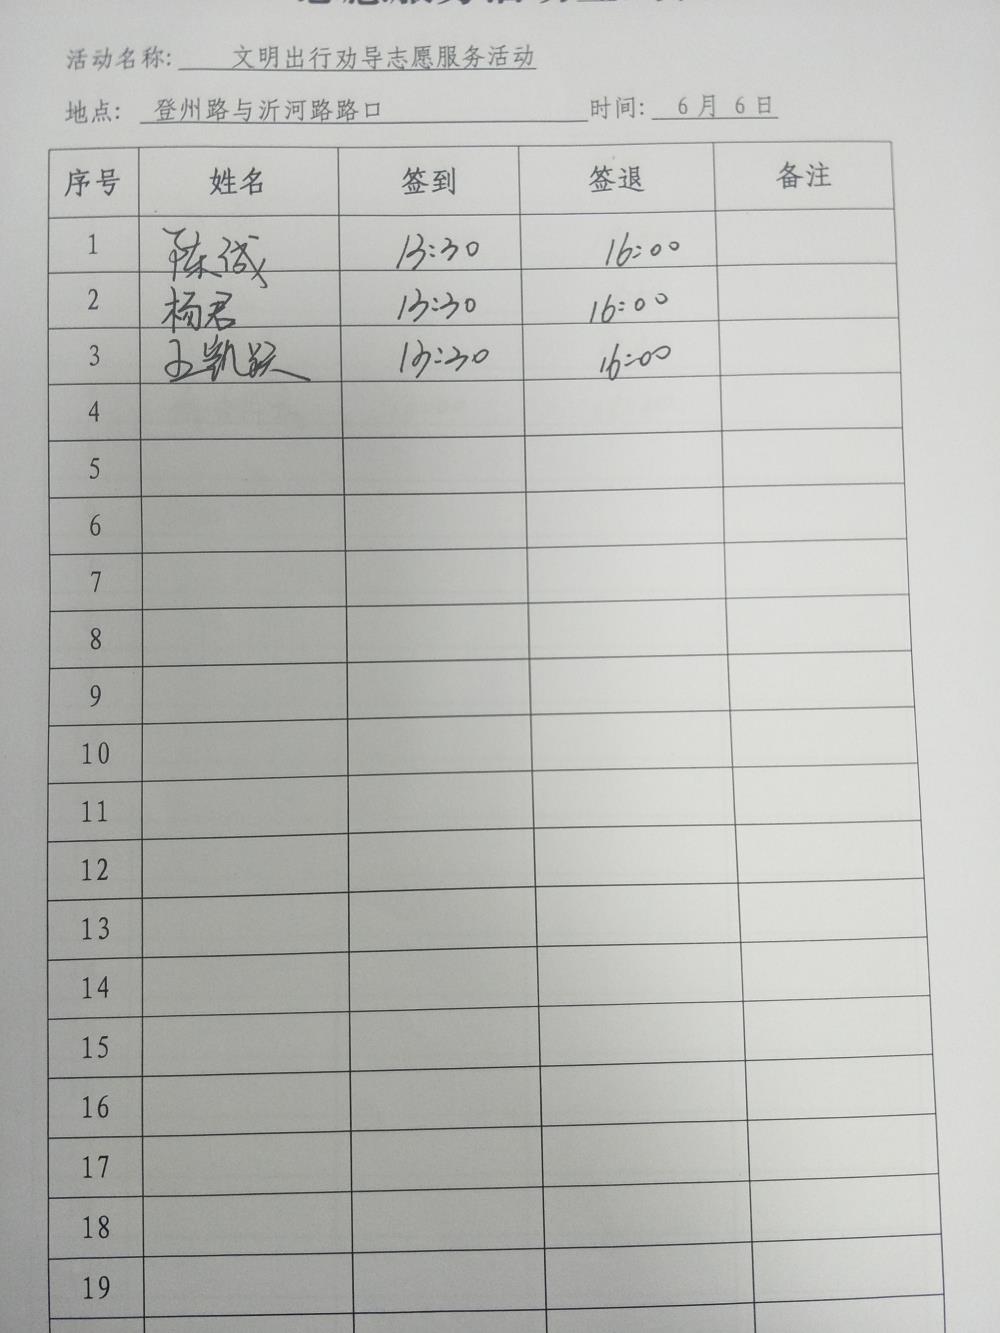 活动名称: 文明出行劝导志愿服务活动
地点: 登州路与沂河路路口 时间: 6月6日
序号 姓名 签到 签退 备注
1 陈诚 13:30 16:00
2 杨君 13:30 16:00
3 王凯 13:30 16:00
4
5
6
7
8
9
10
11
12
13
14
15
16
17
18
19